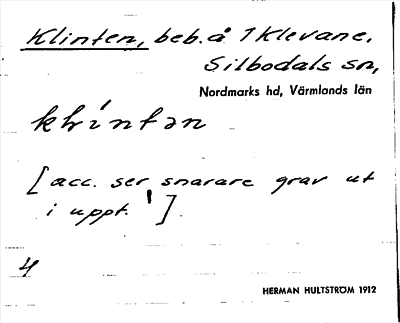 Klinten, beb. å 1 Klevane.
Silbodals sn,
Nordmarks hd, Värmlands län
klíntən
[acc. ser snarare grav ut
i uppt. ']
4
HERMAN HULTSTRÖM 1912